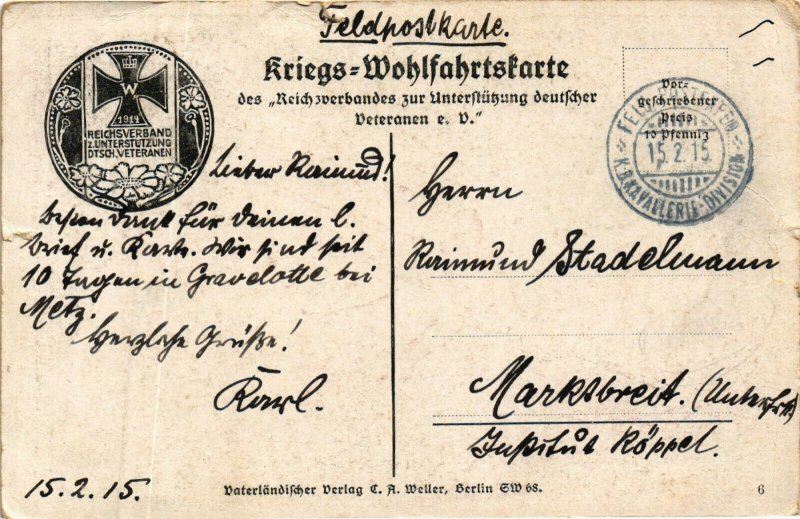 Feldpostkarte.
Kriegs=Wohlfahrtskarte
des „Reichsverbandes zur Unterstützung deutscher
Veteranen e. V."
W
1914
REICHSVERBAND
Z. UNTERSTÜTZUNG
DTSCH. VETERANEN
Vor=
geschriebener
Preis
10 Pfennig
15.2.15
K.B. KAVALLERIE-DIVISION
Lieber Raimund!
besten Dank für Deinen l.
Brief u. Karte. Wir sind seit
10 Tagen in Gravelotte bei
Metz.
Herzliche Grüße!
Karl.
15.2.15.
Herrn
Raimund Stadelmann
Marktbreit. (Unterfr.)
Institut Köppel.
Vaterländischer Verlag C. A. Weller, Berlin SW 68.
6